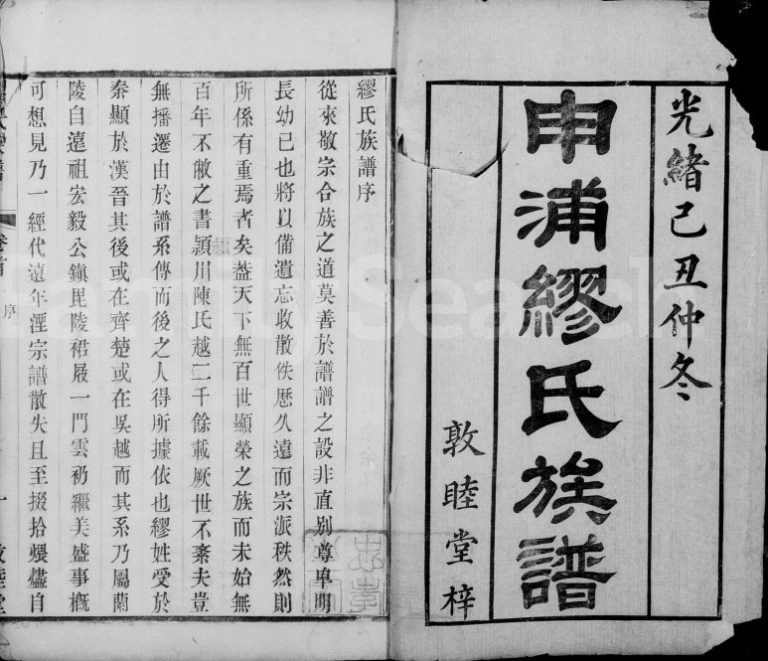 光緒己丑仲冬
申浦繆氏族譜
敦睦堂梓
繆氏族譜序
從來敬宗合族之道莫善於譜譜之設非直别尊卑明
長幼已也將以備遺忘收散佚歷久遠而宗派秩然則
所係有重焉者矣葢天下無百世顯榮之族而未始無
百年不敝之書潁川陳氏越二千餘載厥世不紊夫豈
無播遷由於譜系傳而後之人得所據依也繆姓受於
秦顯於漢晉其後或在齊楚或在吳越而其系乃屬蘭
陵自遠祖宏毅公鎮毘陵裙屐一門雲礽繼美盛事概
可想見乃一經代遠年湮宗譜散失且至掇拾煨燼自
卷首
序
一
敦睦堂
FamilySearch